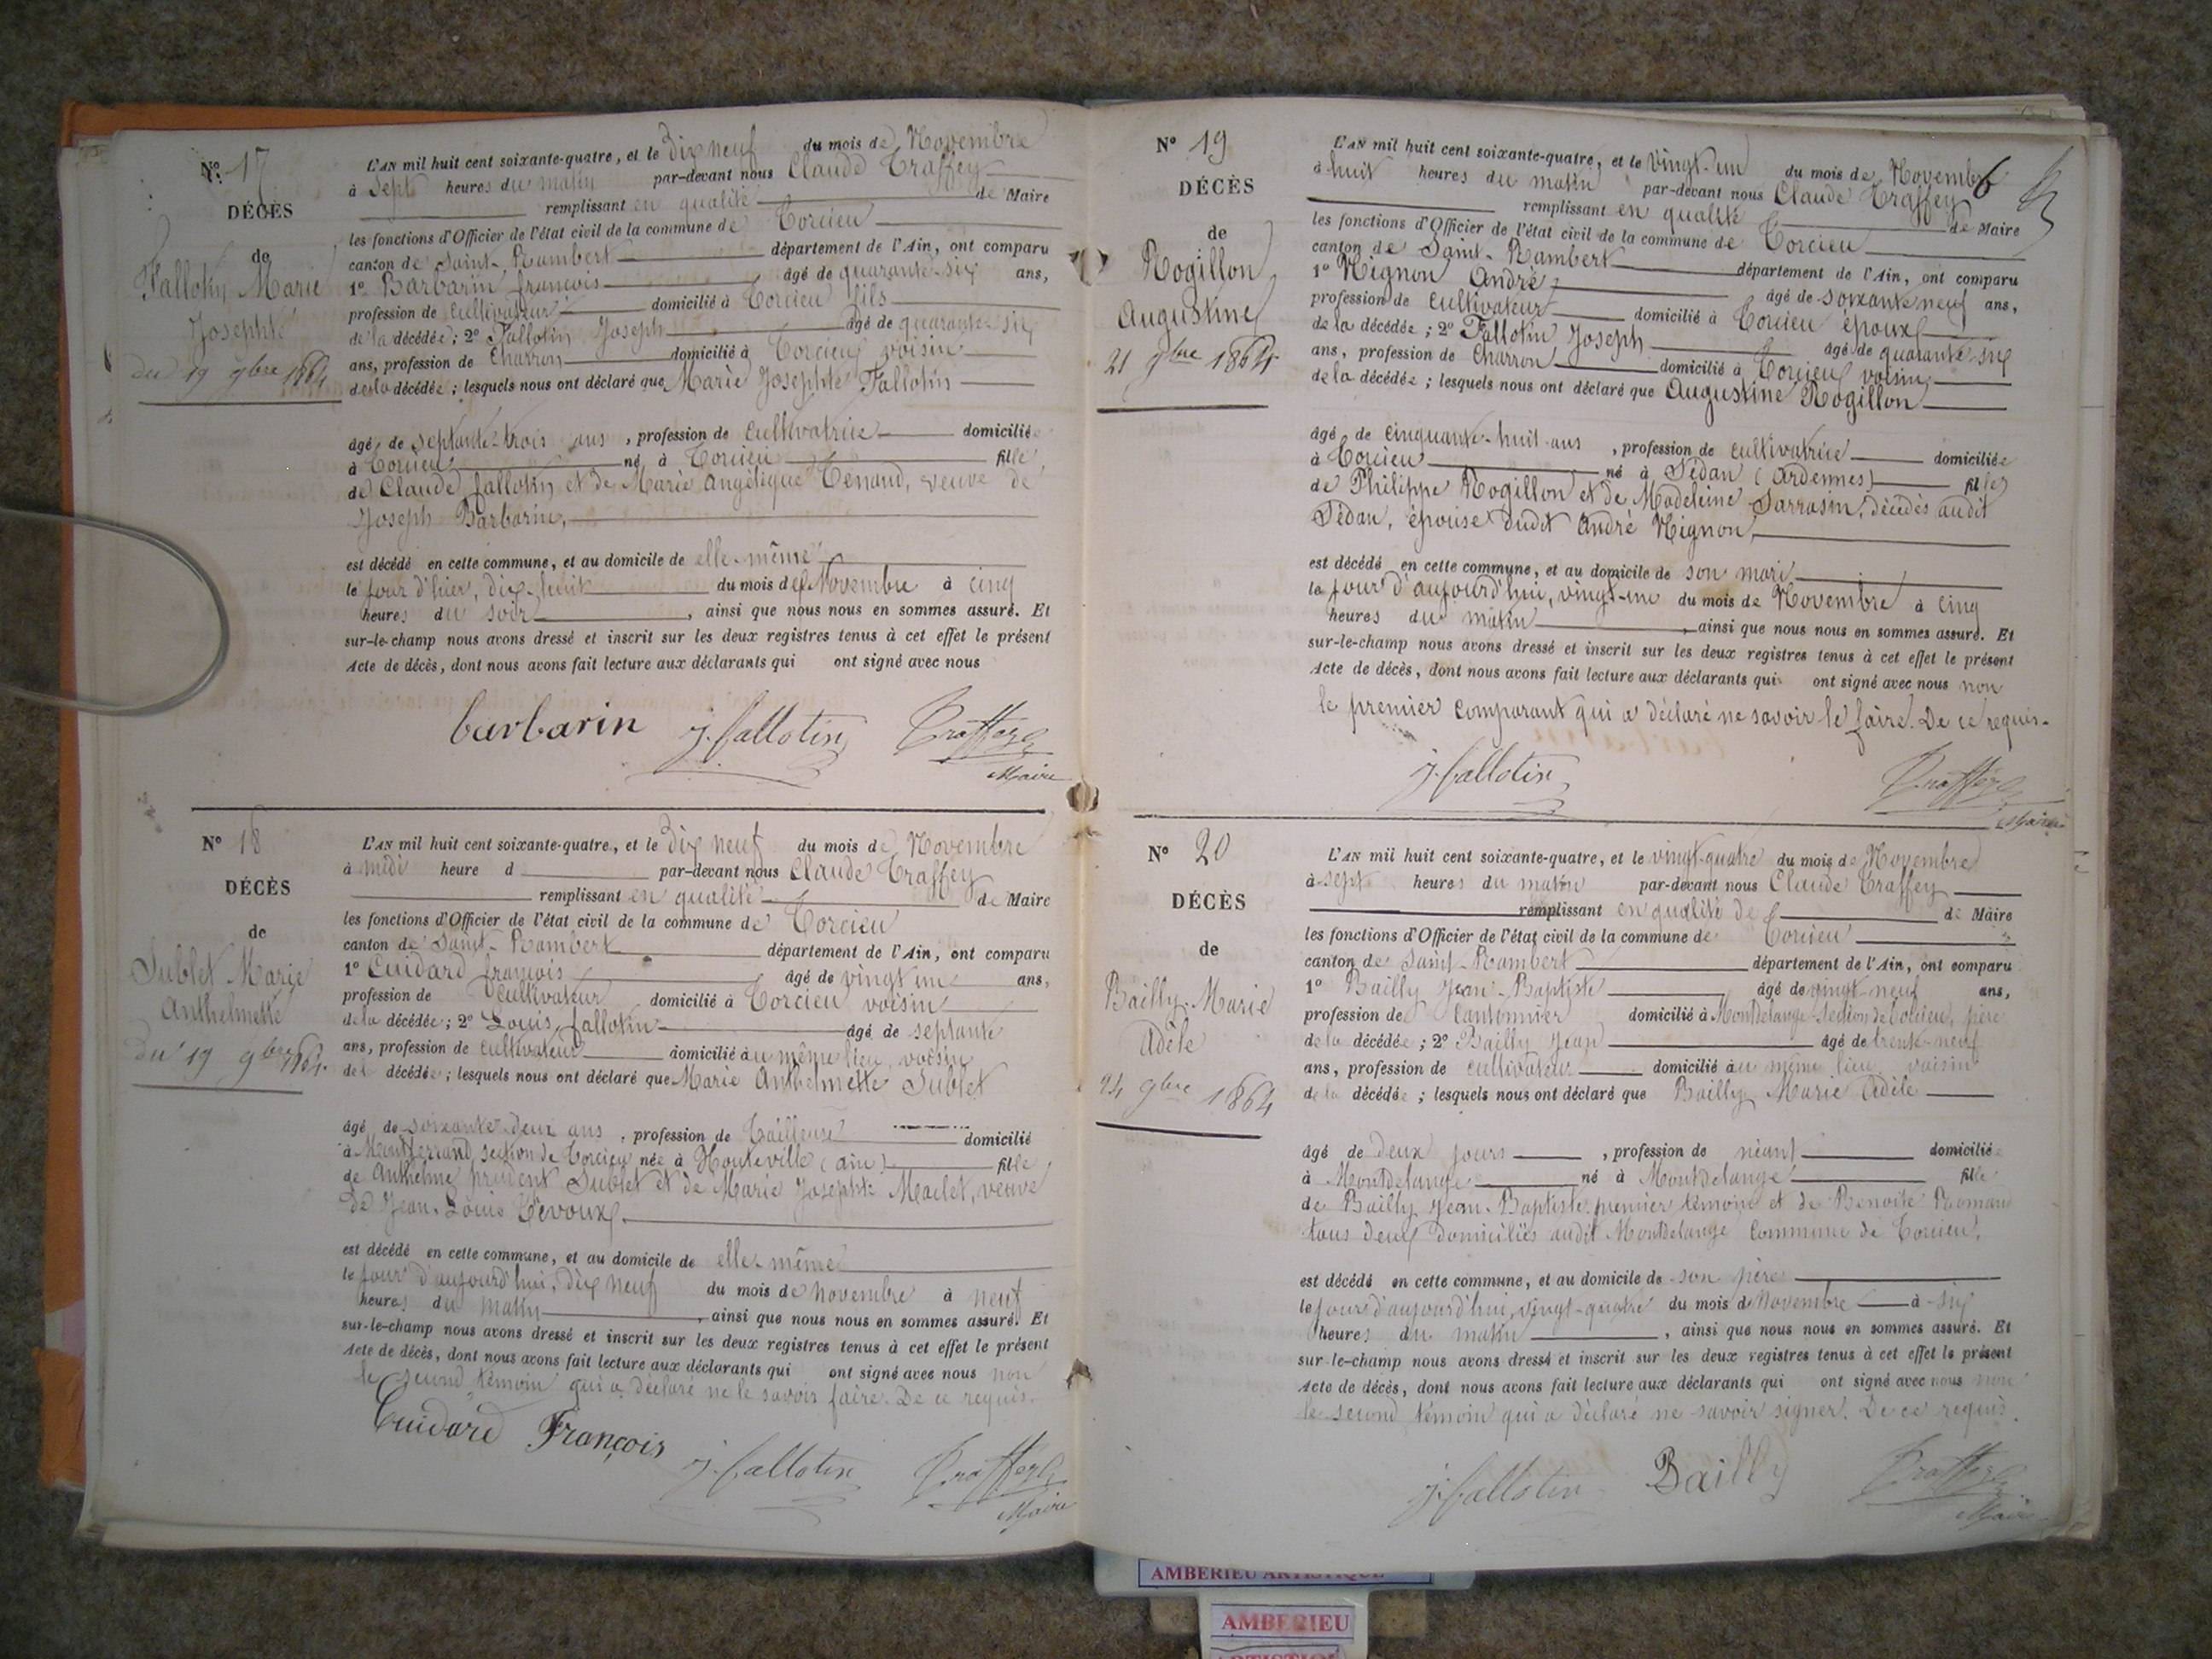 N° 17
DÉCÈS
de
Fallotin Marie
Josephte
du 19 9bre 1864
L'AN mil huit cent soixante-quatre, et le dix neuf du mois de Novembre
à sept heures du matin par-devant nous Claude Traffey
remplissant en qualité de Maire
les fonctions d'Officier de l'état civil de la commune de Torcieu
canton de Saint-Rambert département de l'Ain, ont comparu
1° Barbarin françois âgé de quarante-six ans,
profession de cultivateur domicilié à Torcieu fils
de la décédée; 2° Fallotin Joseph âgé de quarante-six
ans, profession de Charron domicilié à Torcieu voisin
de la décédée; lesquels nous ont déclaré que Marie Josephte Fallotin
âgé de septante-trois ans, profession de cultivatrice domiciliée
à Torcieu né à Torcieu fille
de Claude fallotin et de Marie Angélique Tenand, veuve de
Joseph Barbarin,
est décédé en cette commune, et au domicile de elle-même
le jour d'hier, dix-huit du mois de Novembre à cinq
heures du soir, ainsi que nous nous en sommes assuré. Et
sur-le-champ nous avons dressé et inscrit sur les deux registres tenus à cet effet le présent
Acte de décès, dont nous avons fait lecture aux déclarants qui ont signé avec nous
barbarin J. fallotin Traffey
Maire
N° 18
DÉCÈS
de
Sublet Marie
Anthelmette
du 19 9bre 1864
L'AN mil huit cent soixante-quatre, et le dix neuf du mois de Novembre
à midi heure d par-devant nous Claude Traffey
remplissant en qualité de Maire
les fonctions d'Officier de l'état civil de la commune de Torcieu
canton de Saint-Rambert département de l'Ain, ont comparu
1° Cuidard françois âgé de vingt un ans,
profession de cultivateur domicilié à Torcieu voisin
de la décédée; 2° Louis fallotin âgé de septante
ans, profession de cultivateur domicilié au même lieu, voisin
de l décédée; lesquels nous ont déclaré que Marie Anthelmette Sublet
âgé de soixante-deux ans, profession de Tailleuse domicilié
à Montferrand, section de Torcieu née à Hauteville (ain) fille
de Anthelme prudent Sublet et de Marie Josephte Maclet, veuve
de Jean-Louis Tevoux.
est décédé en cette commune, et au domicile de elle-même
le jour d'aujourd'hui, dix neuf du mois de novembre à neuf
heures du matin, ainsi que nous nous en sommes assuré. Et
sur-le-champ nous avons dressé et inscrit sur les deux registres tenus à cet effet le présent
Acte de décès, dont nous avons fait lecture aux déclarants qui ont signé avec nous non
le second témoin qui a déclaré ne le savoir faire. De ce requis.
Cuidard François J. fallotin Traffey
Maire
N° 19
DÉCÈS
de
Rogillon
Augustine
21 9bre 1864
L'AN mil huit cent soixante-quatre, et le vingt-un du mois de Novembre
6
à huit heures du matin par-devant nous Claude Traffey
remplissant en qualité de Maire
les fonctions d'Officier de l'état civil de la commune de Torcieu
canton de Saint-Rambert département de l'Ain, ont comparu
1° Mignon André âgé de soixante neuf ans,
profession de cultivateur domicilié à Torcieu époux
de la décédée; 2° Fallotin Joseph âgé de quarante-six
ans, profession de Charron domicilié à Torcieu voisin
de la décédée; lesquels nous ont déclaré que Augustine Rogillon
âgé de cinquante-huit ans, profession de cultivatrice domiciliée
à Torcieu né à Sédan (Ardennes) fille
de Philippe Rogillon et de Madeleine Sarrasin, décédés audit
Sédan, épouse dudit André Mignon,
est décédé en cette commune, et au domicile de son mari
le jour d'aujourd'hui, vingt-un du mois de Novembre à cinq
heures du matin, ainsi que nous nous en sommes assuré. Et
sur-le-champ nous avons dressé et inscrit sur les deux registres tenus à cet effet le présent
Acte de décès, dont nous avons fait lecture aux déclarants qui ont signé avec nous non
le premier comparant qui a déclaré ne savoir le faire. De ce requis.
J. fallotin Traffey
Maire
N° 20
DÉCÈS
de
Bailly Marie
Adèle
24 9bre 1864
L'AN mil huit cent soixante-quatre, et le vingt-quatre du mois de Novembre
à sept heures du matin par-devant nous Claude Traffey
remplissant en qualité de de Maire
les fonctions d'Officier de l'état civil de la commune de Torcieu
canton de Saint-Rambert département de l'Ain, ont comparu
1° Bailly Jean-Baptiste âgé de vingt-neuf ans,
profession de Cantonnier domicilié à Montdelange section de Torcieu, père
de la décédée; 2° Bailly Jean âgé de trente-neuf
ans, profession de cultivateur domicilié au même lieu, voisin
de la décédée; lesquels nous ont déclaré que Bailly Marie Adèle
âgé de deux jours, profession de néant domiciliée
à Montdelange né à Montdelange fille
de Bailly Jean-Baptiste premier témoin et de Benoite Roman
tous deux domiciliés audit Montdelange commune de Torcieu,
est décédé en cette commune, et au domicile de son père
le jour d'aujourd'hui, vingt-quatre du mois de Novembre à six
heures du matin, ainsi que nous nous en sommes assuré. Et
sur-le-champ nous avons dressé et inscrit sur les deux registres tenus à cet effet le présent
Acte de décès, dont nous avons fait lecture aux déclarants qui ont signé avec nous non
le second témoin qui a déclaré ne savoir signer. De ce requis.
J. fallotin Bailly Traffey
Maire
AMBERIEU ARTISTIQUE
AMBERIEU
ARTISTIQUE